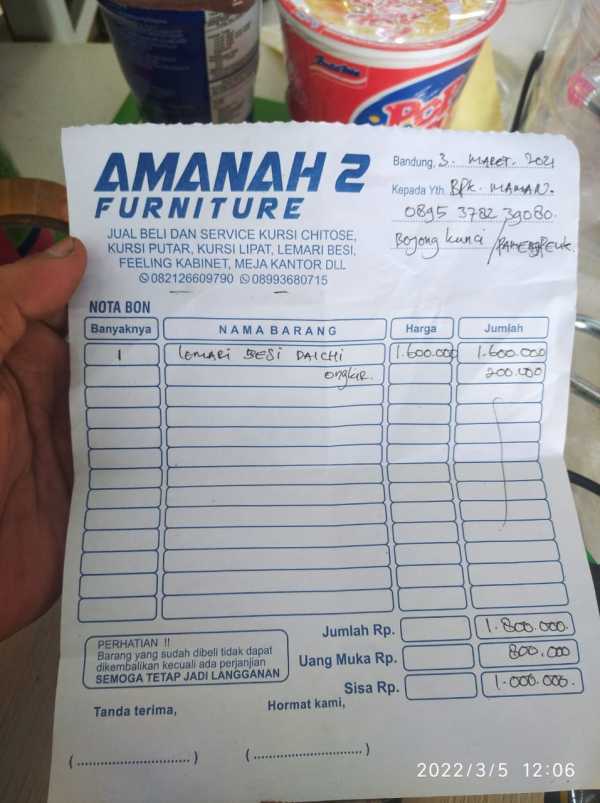 IndoMie
Pop
AMANAH 2
FURNITURE
JUAL BELI DAN SERVICE KURSI CHITOSE,
KURSI PUTAR, KURSI LIPAT, LEMARI BESI,
FEELING KABINET, MEJA KANTOR DLL
082126609790 08993680715
Bandung, 3. MARET. 2021
Kepada Yth. BPK. MAMAN.
0895 3782 39080.
Bojong kunci / PAMEUNGPEUK.
NOTA BON
Banyaknya NAMA BARANG Harga Jumlah
1 LEMARI BESI DAICHI 1.600.000 1.600.000
ongkir. 200.000
Jumlah Rp. 1.800.000.
Uang Muka Rp. 800.000
Sisa Rp. 1.000.000.
PERHATIAN !!
Barang yang sudah dibeli tidak dapat
dikembalikan kecuali ada perjanjian
SEMOGA TETAP JADI LANGGANAN
Tanda terima, Hormat kami,
(..............................) (..............................)
2022/3/5 12:06